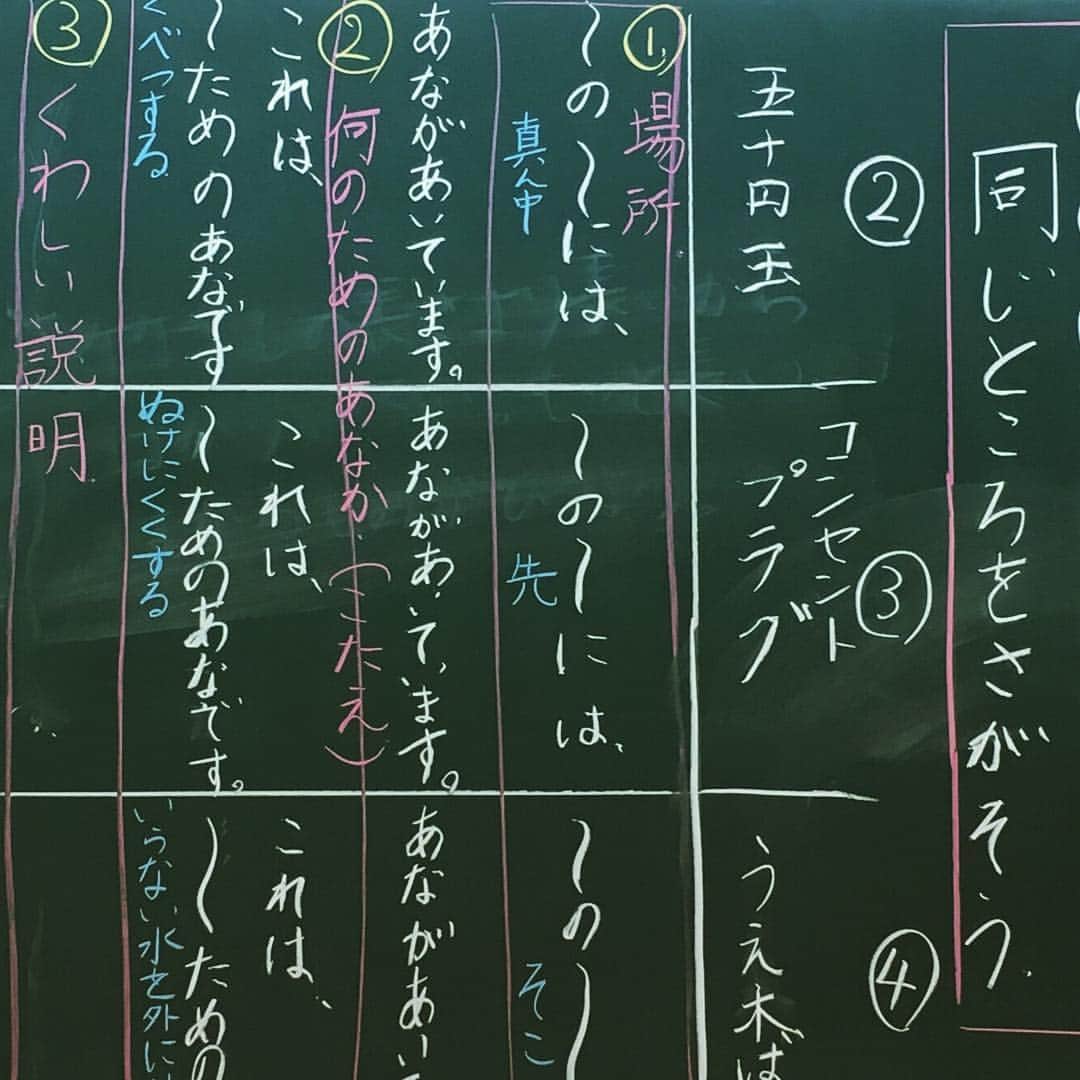 同じところをさがそう。
②
五十円玉
③
コンセント
プラグ
④
うえ木ば
① 場所
～の～には、
真ん中
～の～には、
先
～の～
そこ
あながあいています。
あながあいています。
あながあい
② 何のためのあなか。（こたえ）
これは、
これは、
これは、
～ためのあなです
～ためのあなです。
～ための
くべつする
ぬけにくくする
いらない水を外に
③ くわしい説明